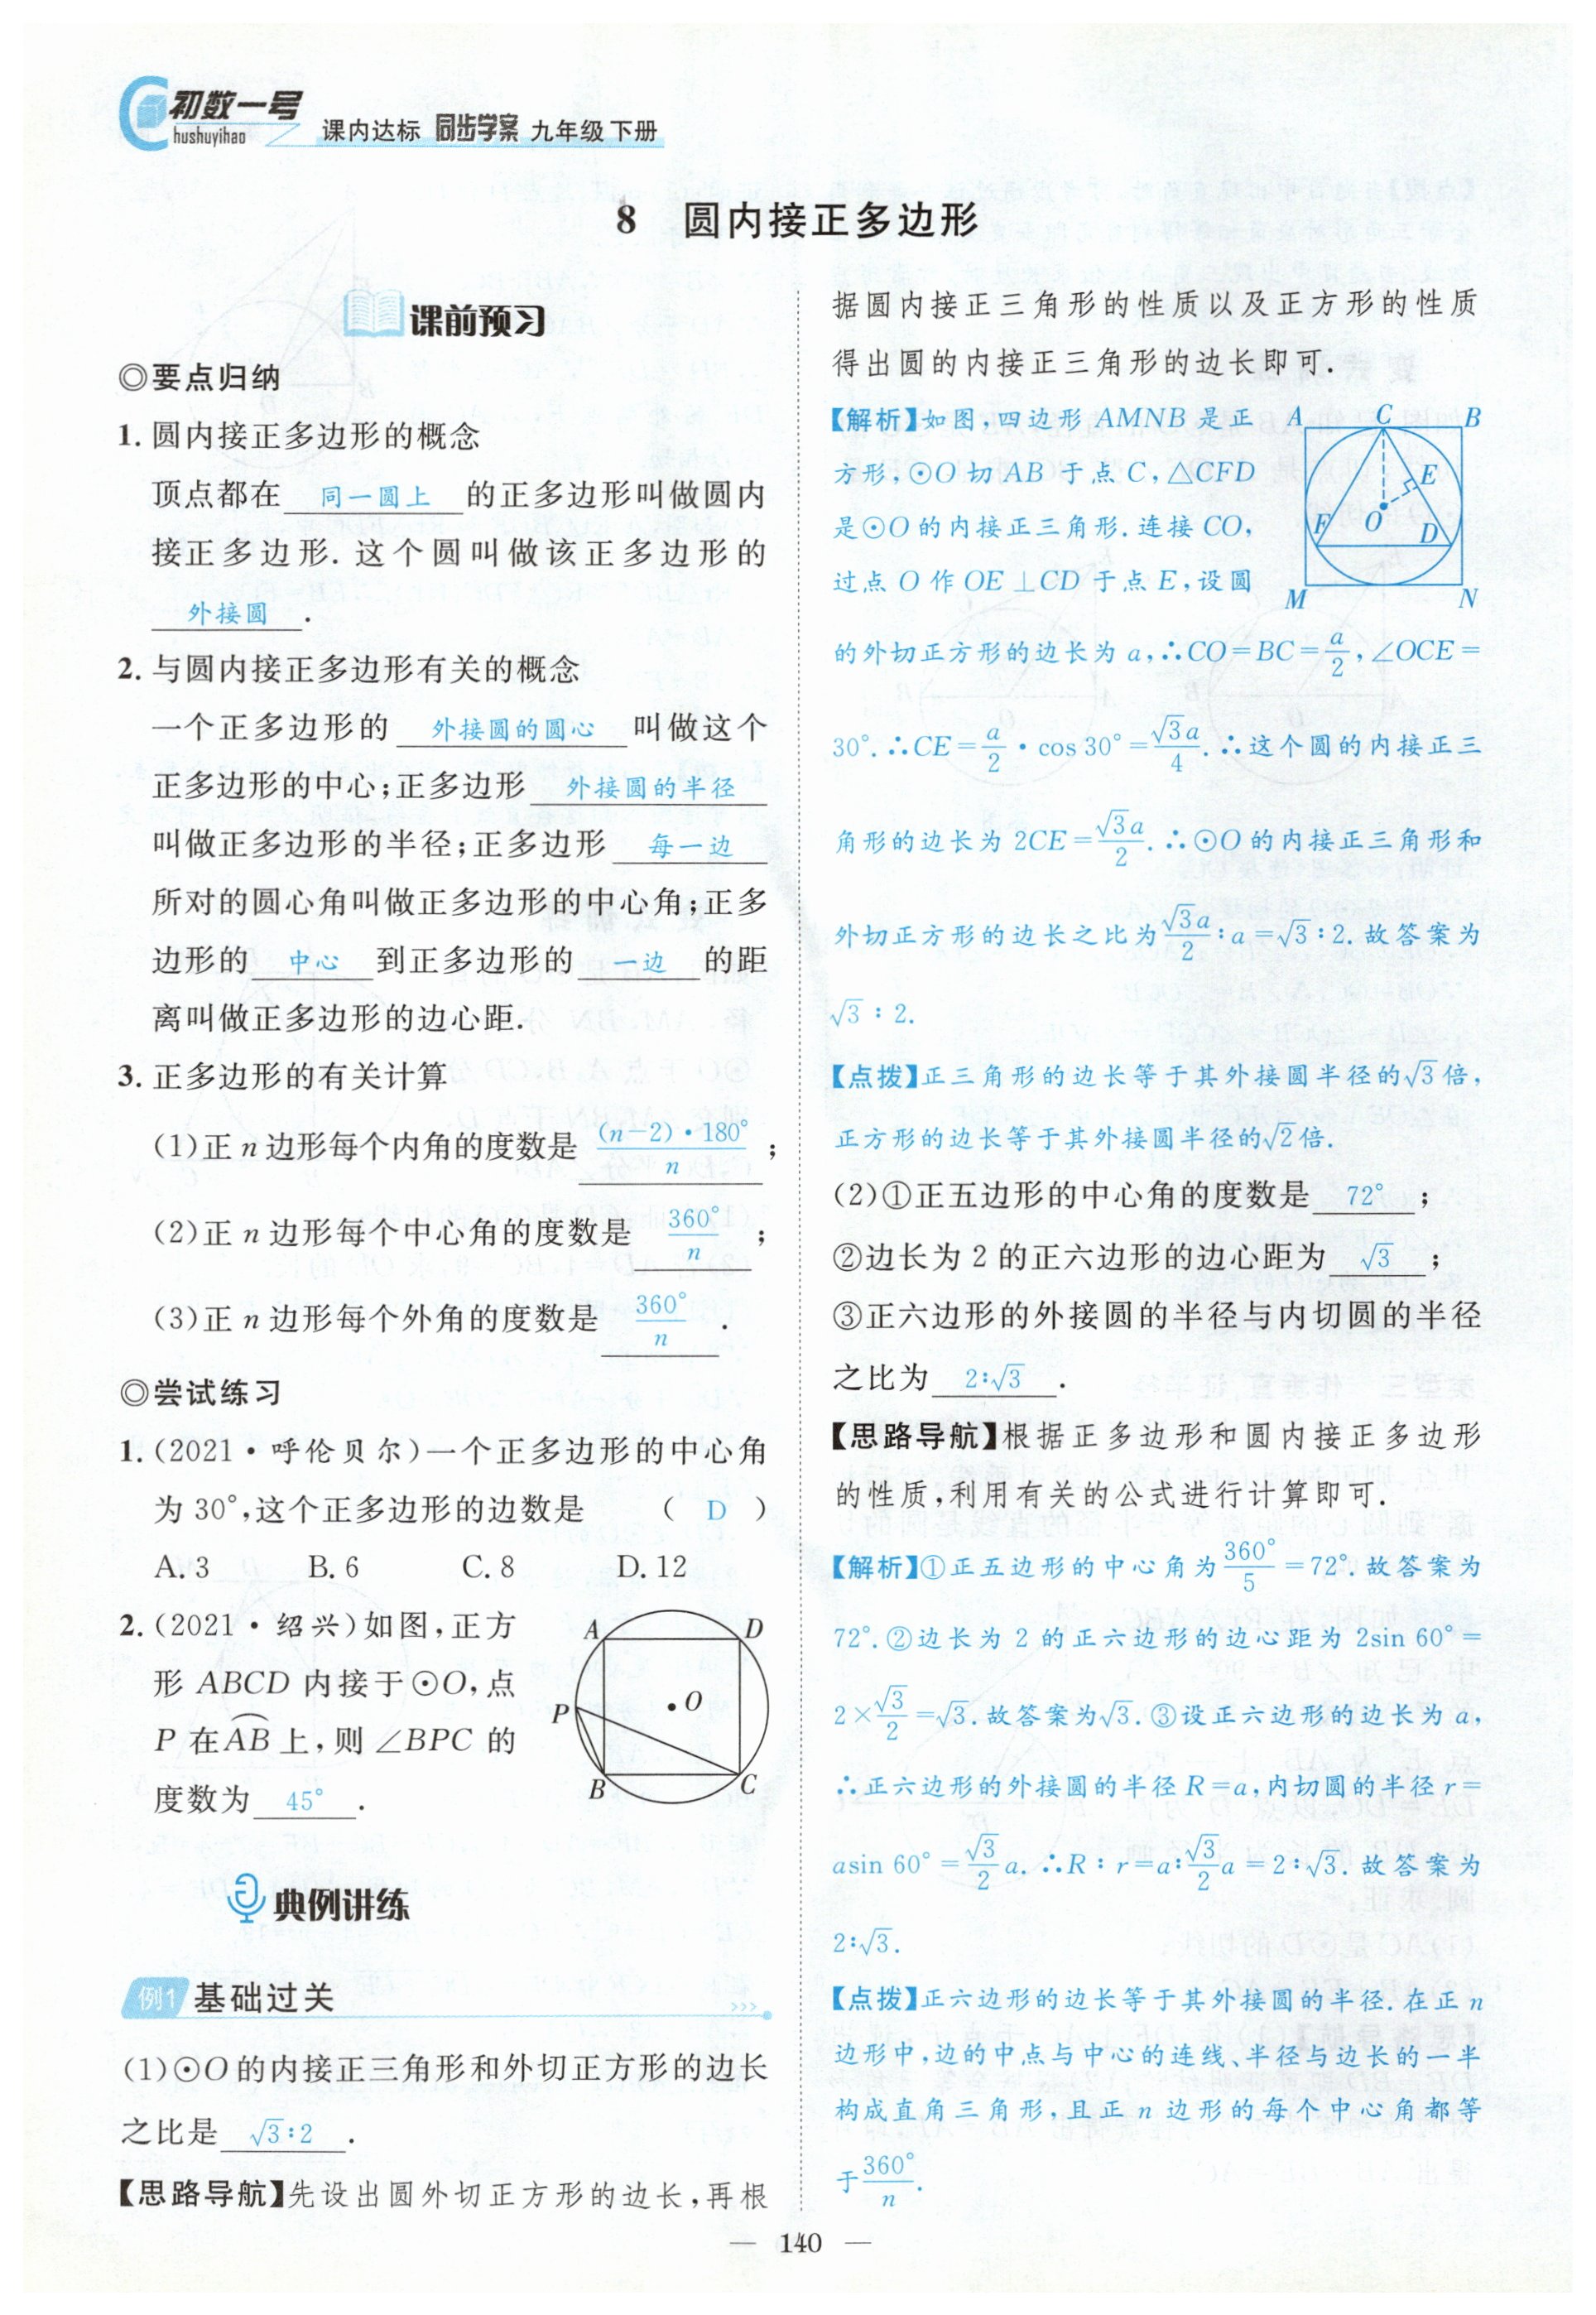 初数一号
hushuyihao
课内达标 同步学案 九年级 下册
8 圆内接正多边形
课前预习
◎要点归纳
1. 圆内接正多边形的概念
顶点都在 同一圆上 的正多边形叫做圆内
接正多边形. 这个圆叫做该正多边形的
外接圆 .
2. 与圆内接正多边形有关的概念
一个正多边形的 外接圆的圆心 叫做这个
正多边形的中心;正多边形 外接圆的半径
叫做正多边形的半径;正多边形 每一边
所对的圆心角叫做正多边形的中心角;正多
边形的 中心 到正多边形的 一边 的距
离叫做正多边形的边心距.
3. 正多边形的有关计算
(1)正 n 边形每个内角的度数是 (n-2)·180°/n ;
(2)正 n 边形每个中心角的度数是 360°/n ;
(3)正 n 边形每个外角的度数是 360°/n .
◎尝试练习
1. (2021·呼伦贝尔)一个正多边形的中心角
为 30°,这个正多边形的边数是 ( D )
A. 3 B. 6 C. 8 D. 12
2. (2021·绍兴)如图,正方
形 ABCD 内接于⊙O,点
P 在⌒AB上,则∠BPC 的
度数为 45° .
A
D
P
O
B
C
典例讲练
例1 基础过关
(1)⊙O 的内接正三角形和外切正方形的边长
之比是 √3∶2 .
【思路导航】先设出圆外切正方形的边长,再根
据圆内接正三角形的性质以及正方形的性质
得出圆的内接正三角形的边长即可.
【解析】如图,四边形 AMNB 是正
方形,⊙O 切 AB 于点 C,△CFD
是⊙O 的内接正三角形. 连接 CO,
过点 O 作 OE⊥CD 于点 E,设圆
A
C
B
E
F
O
D
M
N
的外切正方形的边长为 a,∴CO=BC=a/2,∠OCE=
30°. ∴CE=a/2·cos 30°=√3a/4. ∴这个圆的内接正三
角形的边长为 2CE=√3a/2. ∴⊙O 的内接正三角形和
外切正方形的边长之比为√3a/2∶a=√3∶2. 故答案为
√3∶2.
【点拨】正三角形的边长等于其外接圆半径的√3倍,
正方形的边长等于其外接圆半径的√2倍.
(2)①正五边形的中心角的度数是 72° ;
②边长为 2 的正六边形的边心距为 √3 ;
③正六边形的外接圆的半径与内切圆的半径
之比为 2∶√3 .
【思路导航】根据正多边形和圆内接正多边形
的性质,利用有关的公式进行计算即可.
【解析】①正五边形的中心角为360°/5=72°. 故答案为
72°. ②边长为 2 的正六边形的边心距为 2sin 60°=
2×√3/2=√3. 故答案为√3. ③设正六边形的边长为 a,
∴正六边形的外接圆的半径 R=a,内切圆的半径 r=
asin 60°=√3/2a. ∴R∶r=a∶√3/2a=2∶√3. 故答案为
2∶√3.
【点拨】正六边形的边长等于其外接圆的半径. 在正 n
边形中,边的中点与中心的连线、半径与边长的一半
构成直角三角形,且正 n 边形的每个中心角都等
于360°/n.
— 140 —